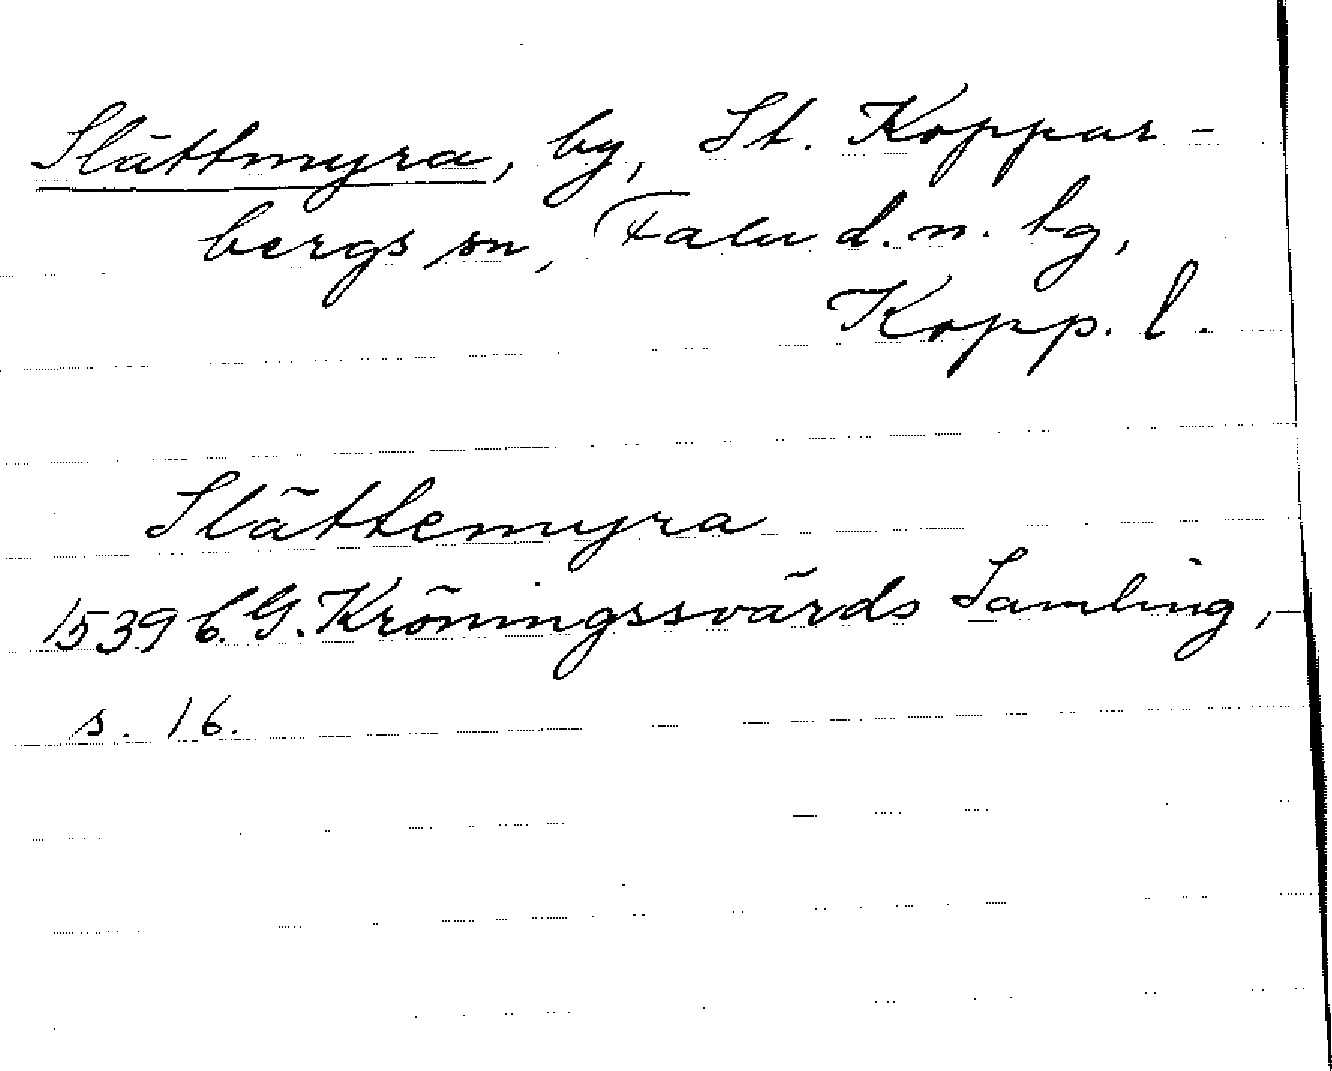 Slättmyra, by, St. Koppar-
bergs sn, Falu d.n. bg,
Kopp. l.
Slättemyra
1539 C.G. Kröningssvärds Samling,
s. 16.